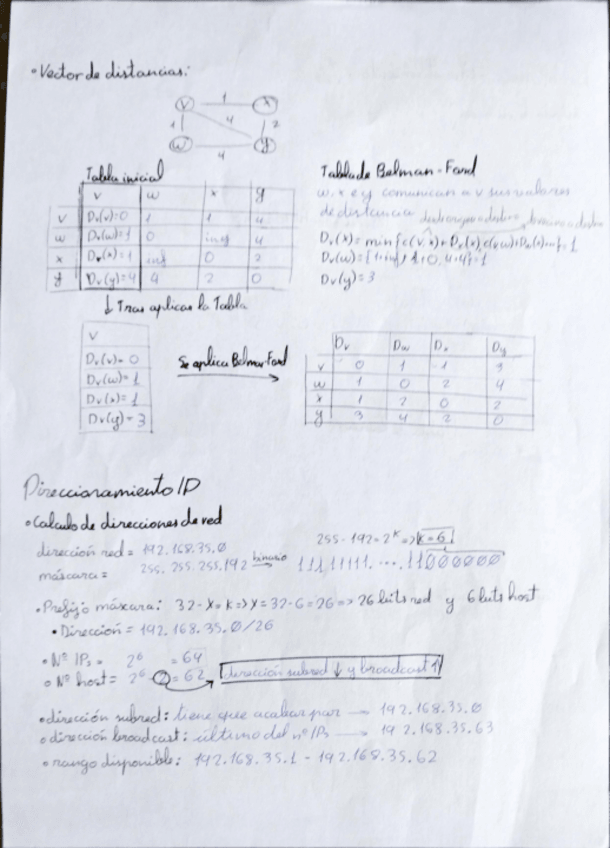 • Vector de distancias:
v 1 x
1 4 2
w 4 y
Tabla inicial
v w x y
v Dv(v)=0 1 1 4
w Dv(w)=1 0 inf 4
x Dv(x)=1 inf 0 2
y Dv(y)=4 4 2 0
↓ Tras aplicar la Tabla
Tabla de Belman-Ford
w, x e y comunican a v sus valores
de distancia
Dv(y)=3
v
Dv(v)=0
Dv(w)=1
Dv(x)=1
Dv(y)=3
Se aplica Belman Ford
Dv Dw Dx Dy
v 0 1 1 3
w 1 0 2 4
x 1 2 0 2
y 3 4 2 0
Direccionamiento IP
• Calculo de direcciones de red
dirección red = 192.168.35.0
máscara = 255.255.255.192 binario 11111111.....11000000
255-192=2^k => k=6
• Prefijo máscara: 32-x=k => x=32-6=26 => 26 bits red y 6 bits host
• Dirección = 192.168.35.0/26
• Nº IPs = 2^6 = 64
• Nº host = 2^6-2 = 62 dirección subred ↓ y broadcast ↑
• dirección subred: tiene que acabar par → 192.168.35.0
• dirección broadcast: último del nº IPs → 192.168.35.63
• rango disponible: 192.168.35.1 - 192.168.35.62